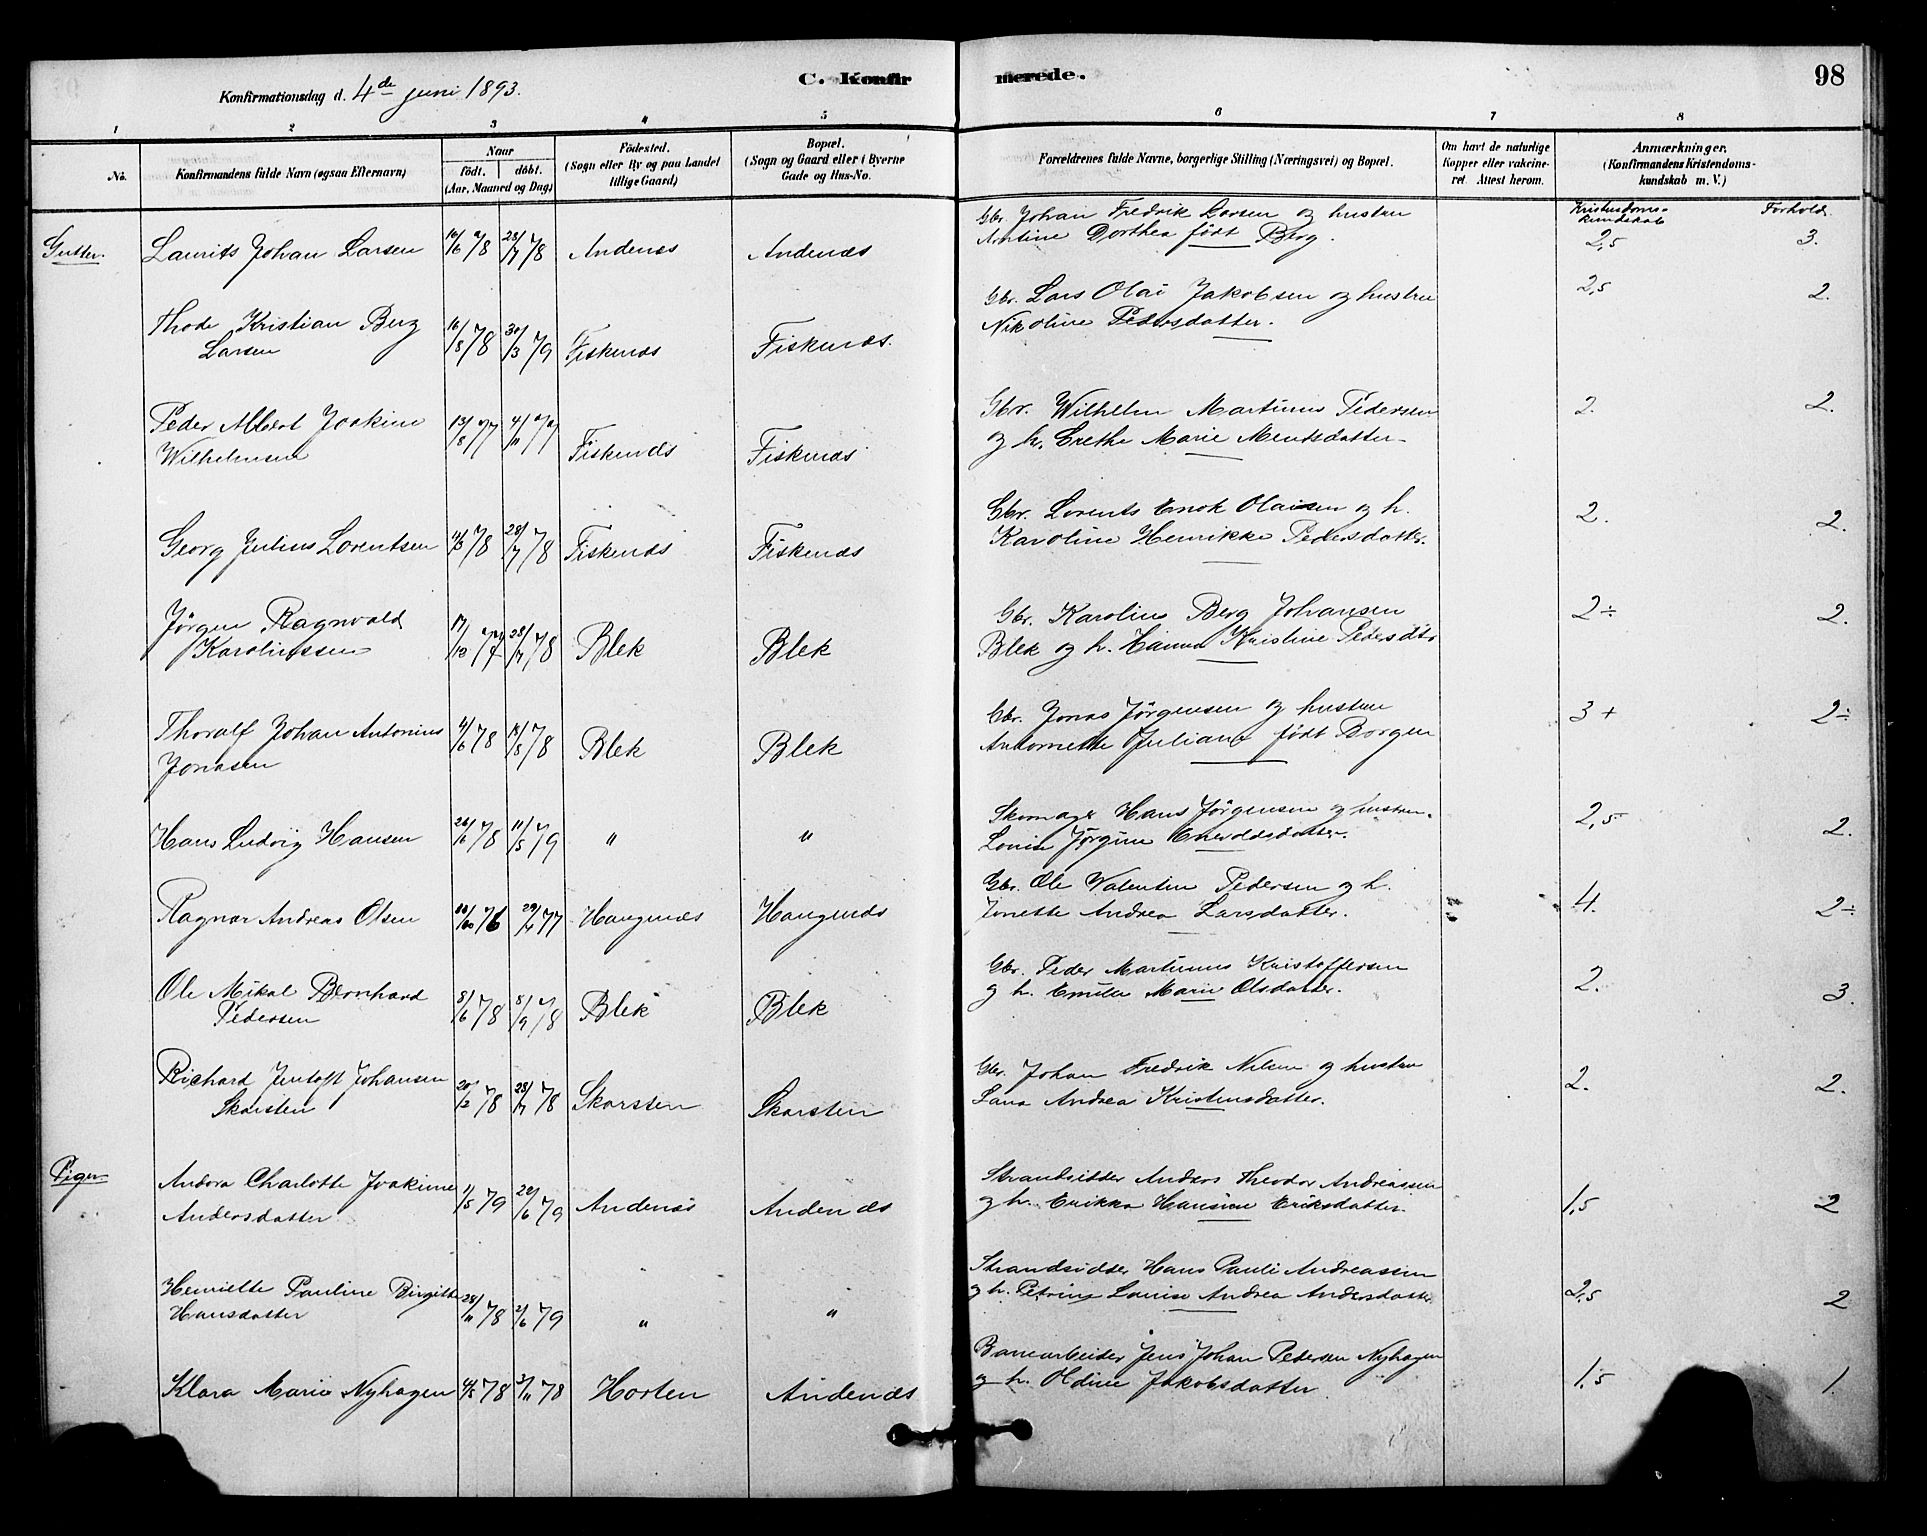 C. Konfirmerede.
98
Konfirmationsdag d. 4de juni 1893.
1 2 3 4 5 6 7 8
No.
Konfirmandens fulde Navn (ogsaa Efternavn)
Naar
födt. döbt.
(Aar, Maaned og Dag)
Födested.
(Sogn eller By og paa Landet
tillige Gaard)
Bopæl.
(Sogn og Gaard eller i Byerne
Gade og Hus-No.
Forældrenes fulde Navne, borgerlige Stilling (Næringsvei) og Bopæl.
Om havt de naturlige
Kopper eller vakcine-
ret. Attest herom.
Anmærkninger.
(Konfirmandens Kristendoms-
kundskab m. V.)
Kristendoms-
kundskab Forhold.
Gutter. Laurits Johan Larsen 78 28/7 78 Andenæs Andenæs
Gbr. Johan Fredrik Larsen og hustru
Dorthea født Berg. 2,5 3.
Thode Kristian Berg
Larsen 16/8 78 30/3 79 Fiskenæs Fiskenæs.
Gbr. Lars Olai Jakobsen og hustru
Nikoline Pedersdatter. 2,5 2.
Peder Albert Joakim
Wilhelmsen 13/8 77 4/11 77 Fiskenæs Fiskenæs
Gbr. Wilhelm Martinus Pedersen
og h. Grethe Marie Mentsdatter 2. 2.
Georg Julius Lorentsen 78 28/7 78 Fiskenæs Fiskenæs
Gbr. Lorents Enok Olaisen og h.
Karoline Henrikke Pedersdatter. 2. 2.
Jørgen Ragnvald
Karoliussen 77 28/7 78 Blek Blek
Gbr. Karolius Berg Johansen
Blek og h. Hanna Kristine Pedersdtr 2÷ 2.
Thoralf Johan Antonius
Jonasen 78 78 Blek Blek
Gbr. Jonas Jørgensen og hustru
Antonette Juliane født Borgen 3+ 2÷
Hans Ludvig Hansen 78 11/5 79 " "
Skomager Hans Jørgensen og hustru
Lovise Jørgine 2,5 2.
Ragnar Andreas Olsen 76 77 Haugnæs Haugnæs
Gbr. Ole Valentin Pedersen og h.
Jonette Andrea Larsdatter. 4. 2÷
Ole Mikal Bernhard
Pedersen 8/6 78 8/9 78 Blek Blek
Gbr. Peder Martinus Kristoffersen
og h. Emilie Marie Olsdatter. 2. 3.
Richard Jentoft Johansen
Skarsten 20/2 78 28/7 78 Skarsten Skarsten
Gbr. Johan Fredrik Nilsen og hustru
Lava Andrea Kristensdatter. 2. 2.
Piger. Andora Charlotte Joakime
Andersdatter 11/5 79 22/6 79 Andenæs Andenæs
Strandsidder Anders Theodor Andreassen
og h. Erikka Hansine Eriksdatter. 1,5 2
Henriette Pauline Birgitte
Hansdatter 28/11 78 2/6 79 " "
Strandsidder Hans Pauli Andreassen
og h. Petrine Lovise Andrea Andersdatter 2,5 2
Klara Marie Nyhagen 78 78 Horten Andenæs
Banearbeider Jens Johan Pedersen Nyhagen
og h. Oldine Jakobsdatter. 1,5 1.